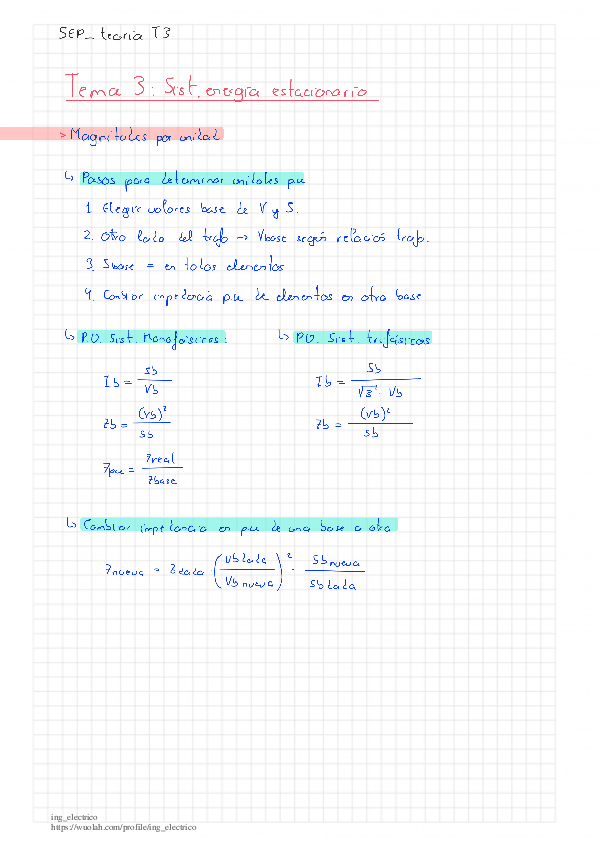 SEP_ teoría T3
Tema 3: Sist. energía estacionario
> Magnitudes por unidad
↳ Pasos para determinar unidades pu
1. Elegir valores base de V y S.
2. Otro lado del trafo → Vbase según relación trafo.
3. Sbase = en todos elementos
4. Cambiar impedancia p.u de elementos en otra base
↳ P.U. Sist. Monofásicos:
Ib = Sb / Vb
Zb = (Vb)² / Sb
Zpu = Zreal / Zbase
↳ P.U. Sist. trifásicos
Ib = Sb / √3 · Vb
Zb = (Vb)² / Sb
↳ Cambiar impedancia en pu de una base a otra
Znueva = Zdada (Vb dada / Vb nueva)² · Sb nueva / Sb dada
ing_electrico
https://wuolah.com/profile/ing_electrico